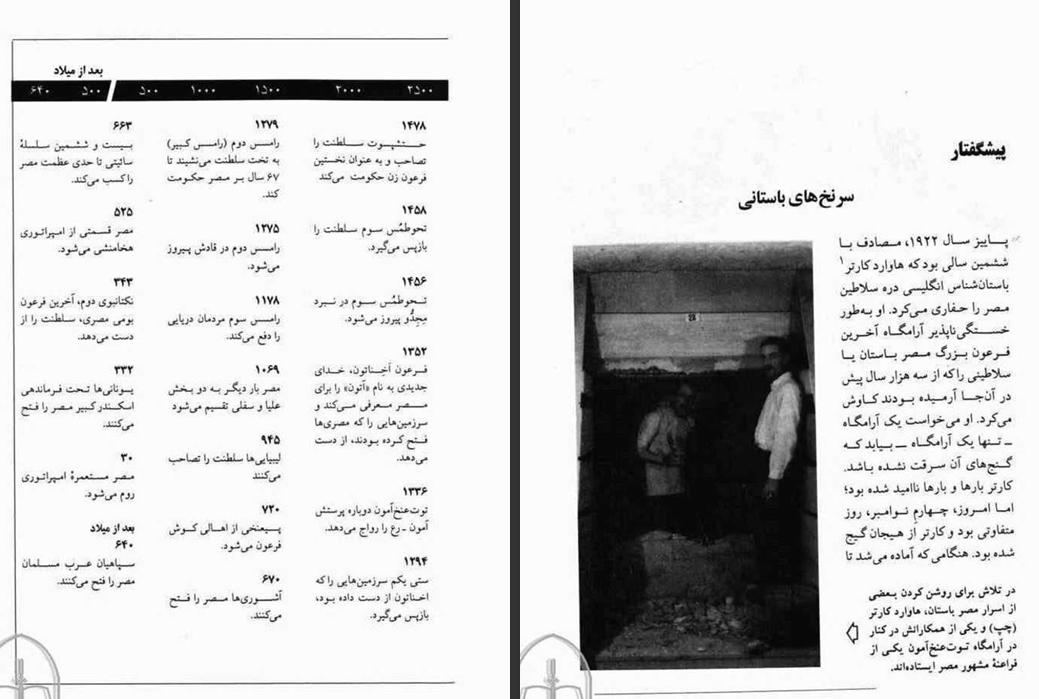 بعد از میلاد
۲۵۰۰ ۲۰۰۰ ۱۵۰۰ ۱۰۰۰ ۵۰۰ ۵۰۰ ۶۴۰
۱۴۷۸
حــتشپسوت ســلطنت را
تصاحب و به عنوان نخستین
فرعون زن حکومت می‌کند
۱۴۵۸
تحوطمُس سـوم سلطنت را
بازپس می‌گیرد.
۱۴۵۶
تـحوطمُس سـوم در نـبرد
مِجِدُّو پیروز می‌شود.
۱۳۵۲
فـرعون اَخِـناتون، خـدای
جدیدی به نام «آتون» را برای
مـصـر معرفی مـی‌کند و
سرزمین‌هایی را که مصری‌ها
فـتح کرده بـودند، از دست
می‌دهد.
۱۳۳۶
توت‌عنخ‌آمون دوباره پرستش
آمون ـ رع را رواج می‌دهد.
۱۲۹۴
ستی یکم سرزمین‌هایی را که
اخـناتون از دست داده بـود،
بازپس می‌گیرد.
۱۲۷۹
رامسس دوم (رامسس کبیر)
به تخت سلطنت می‌نشیند تا
۶۷ سال بـر مـصر حکـومت
کند.
۱۲۷۵
رامـسس دوم در قادش پـیروز
می‌شود.
۱۱۷۸
رامـسس سوم مردمان دریایی
را دفع می‌کند.
۱۰۶۹
مصر بار دیگـر بـه دو بـخش
علیا و سفلی تقسیم می‌شود
۹۴۵
لیبیایی‌ها سلطنت را تصاحب
می‌کنند
۷۲۰
پـیعنخی از اهـالی کـوش
فرعون می‌شود.
۶۷۰
آشـوری‌ها مـصـر را فـتح
می‌کنند.
۶۶۳
بـیست و ششمین سلسلهٔ
سائیتی تا حدی عظمت مصر
را کسب می‌کند.
۵۲۵
مصر قسمتی از امپراتـوری
هخامنشی می‌شود.
۳۴۳
نکتانبوی دوم، آخرین فرعون
بومی مصری، سـلطنت را از
دست می‌دهد.
۳۳۲
یـونانی‌ها تـحت فـرماندهی
اسکـندر کـبیر مـصر را فـتح
می‌کنند.
۳۰
مـصر مستعمرهٔ امـپراتـوری
روم می‌شود.
بعد از میلاد
۶۴۰
سـپاهیان عـرب مسـلمان
مصر را فتح می‌کنند.
پیشگفتار
سرنخ‌های باستانی
پـاییز سـال ۱۹۲۲، مـصادف بـا
ششمین سالی بود که هاوارد کارتر۱
باستان‌شناس انگلیسی دره سلاطین
مصر را حفاری می‌کرد. او به‌طور
خسـتگی‌ناپذیر آرامگاه آخـرین
فـرعون بـزرگ مـصر بـاستان یـا
سلاطینی را که از سه هزار سال پیش
در آن‌جـا آرمـیده بـودند کـاوش
می‌کرد. او می‌خواست یک آرامگاه
ـ تـنها یک آرامگاه ـ بـیابد کـه
گـنج‌های آن سـرقت نشـده بـاشد.
کارتر بارها و بارها ناامید شده بود؛
امـا امـروز، چـهارم نـوامـبر، روز
متفاوتی بود و کارتر از هیجان گیج
شده بود. هنگامی که آماده می‌شد تا
در تلاش برای روشن کردن بـعضی
از اسرار مصر باستان، هاوارد کارتر
(چپ) و یکی از همکارانش در کنار
در آرامگاه تـوت‌عنخ‌آمون یکـی از
فراعنهٔ مشهور مصر ایستاده‌اند.